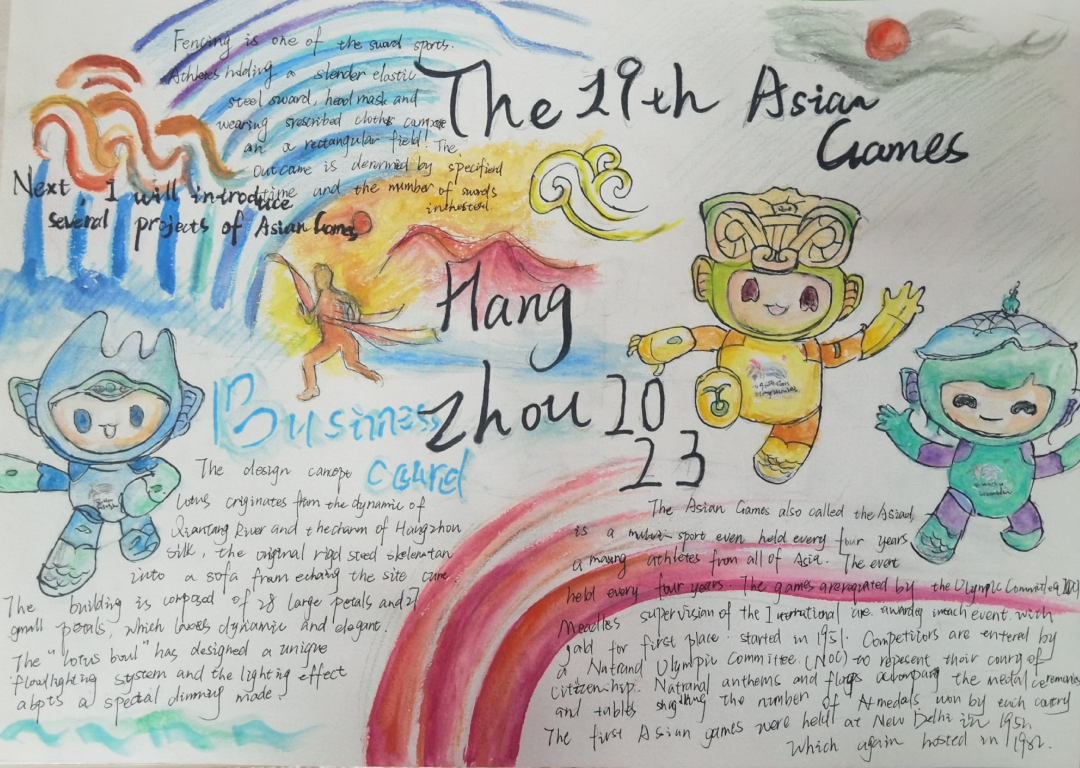 The 19th Asian
Games
Hang
zhou 20
23
Fencing is one of the sword sports.
Athletes holding a slender elastic
steel sword, head mask and
wearing srescribed cloths campete
an a rectangular field! The
Outcame is derormed by specifierd
time and the number of swords
inthesteel
Next, I will introduce
several projects of Asian Games
Business
Caurd
The design canope
Lotus criginates from the dynamic of
Qiantang River and thecharm of Hangzhou
silk, the original rigid steed skeleman
into a sofa fram echoing the site cure
The building is conposed of 28 large petals and 27
small petals, which looks dynamic and elegant.
The "lotus boul" has designed a unique
floodlighting system and the lighting effect
abpts a spectal dimming made.
The Asian Games also called the Asiad,
is a sport even held every four years
a masing athletes from all of Asia. The event
held every four years. The games by the Olympic Committee
Meadles supervision of the are event with
gald for first place. started in 1951. Competitors are entered by
a Natrand Olympic Committee (NOC) to repesent their coury of
Citizenship. Natranal anthems and flags the medal ceremonies
and tables the number of medals won by each coutry
The first Asian games were held at New Delhi in 1951.
Which again hosted in 1982.